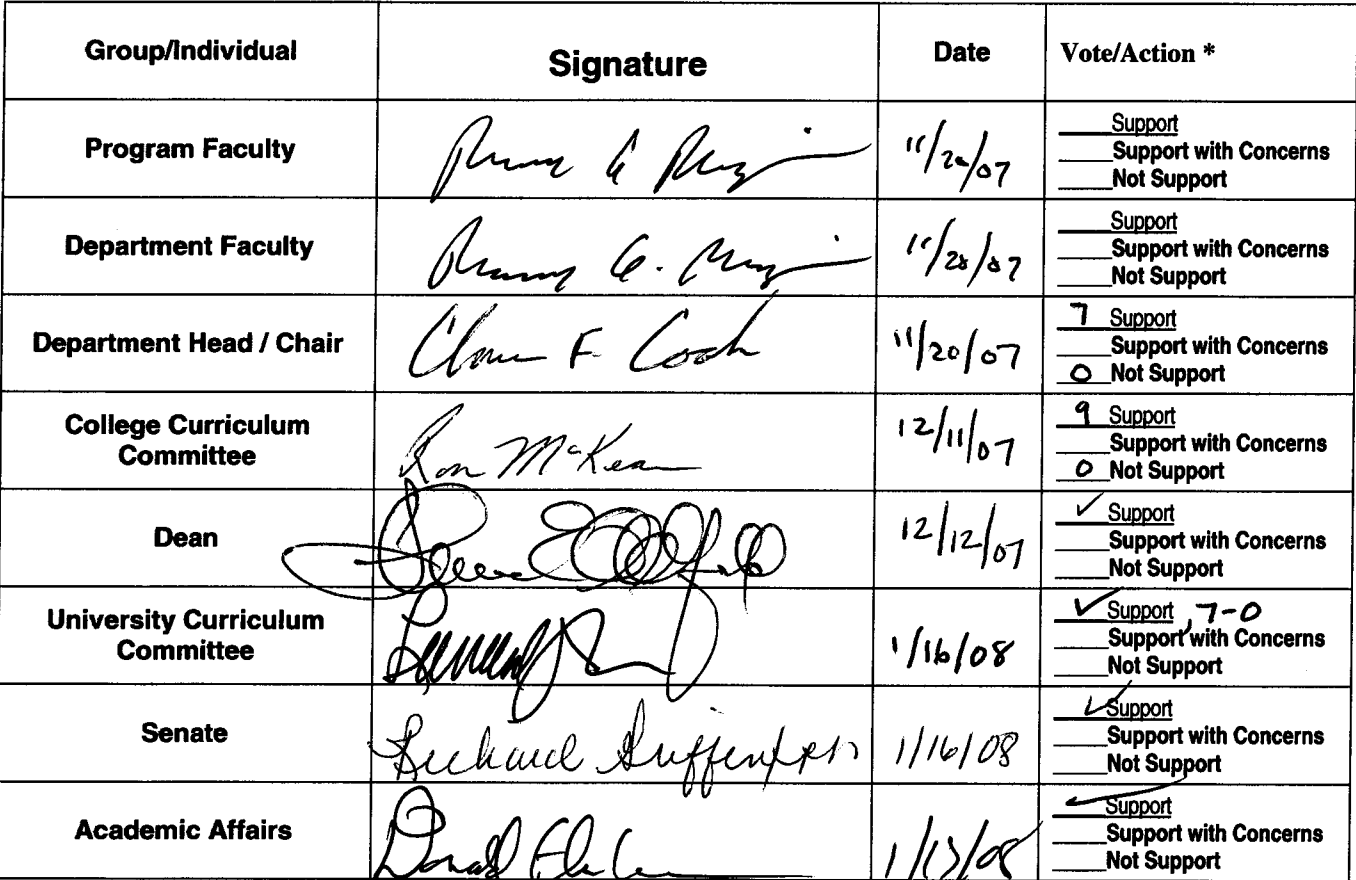 Group/Individual Signature Date Vote/Action *
Program Faculty 11/20/07
Support
Support with Concerns
Not Support
Department Faculty 11/20/07
Support
Support with Concerns
Not Support
Department Head / Chair F. Cook 11/20/07
7 Support
Support with Concerns
0 Not Support
College Curriculum
Committee
Ron McKean 12/11/07
9 Support
Support with Concerns
0 Not Support
Dean 12/12/07
✓ Support
Support with Concerns
Not Support
University Curriculum
Committee
1/16/08
✓ Support, 7-0
Support with Concerns
Not Support
Senate Richard 1/16/08
✓ Support
Support with Concerns
Not Support
Academic Affairs Donald
✓ Support
Support with Concerns
Not Support